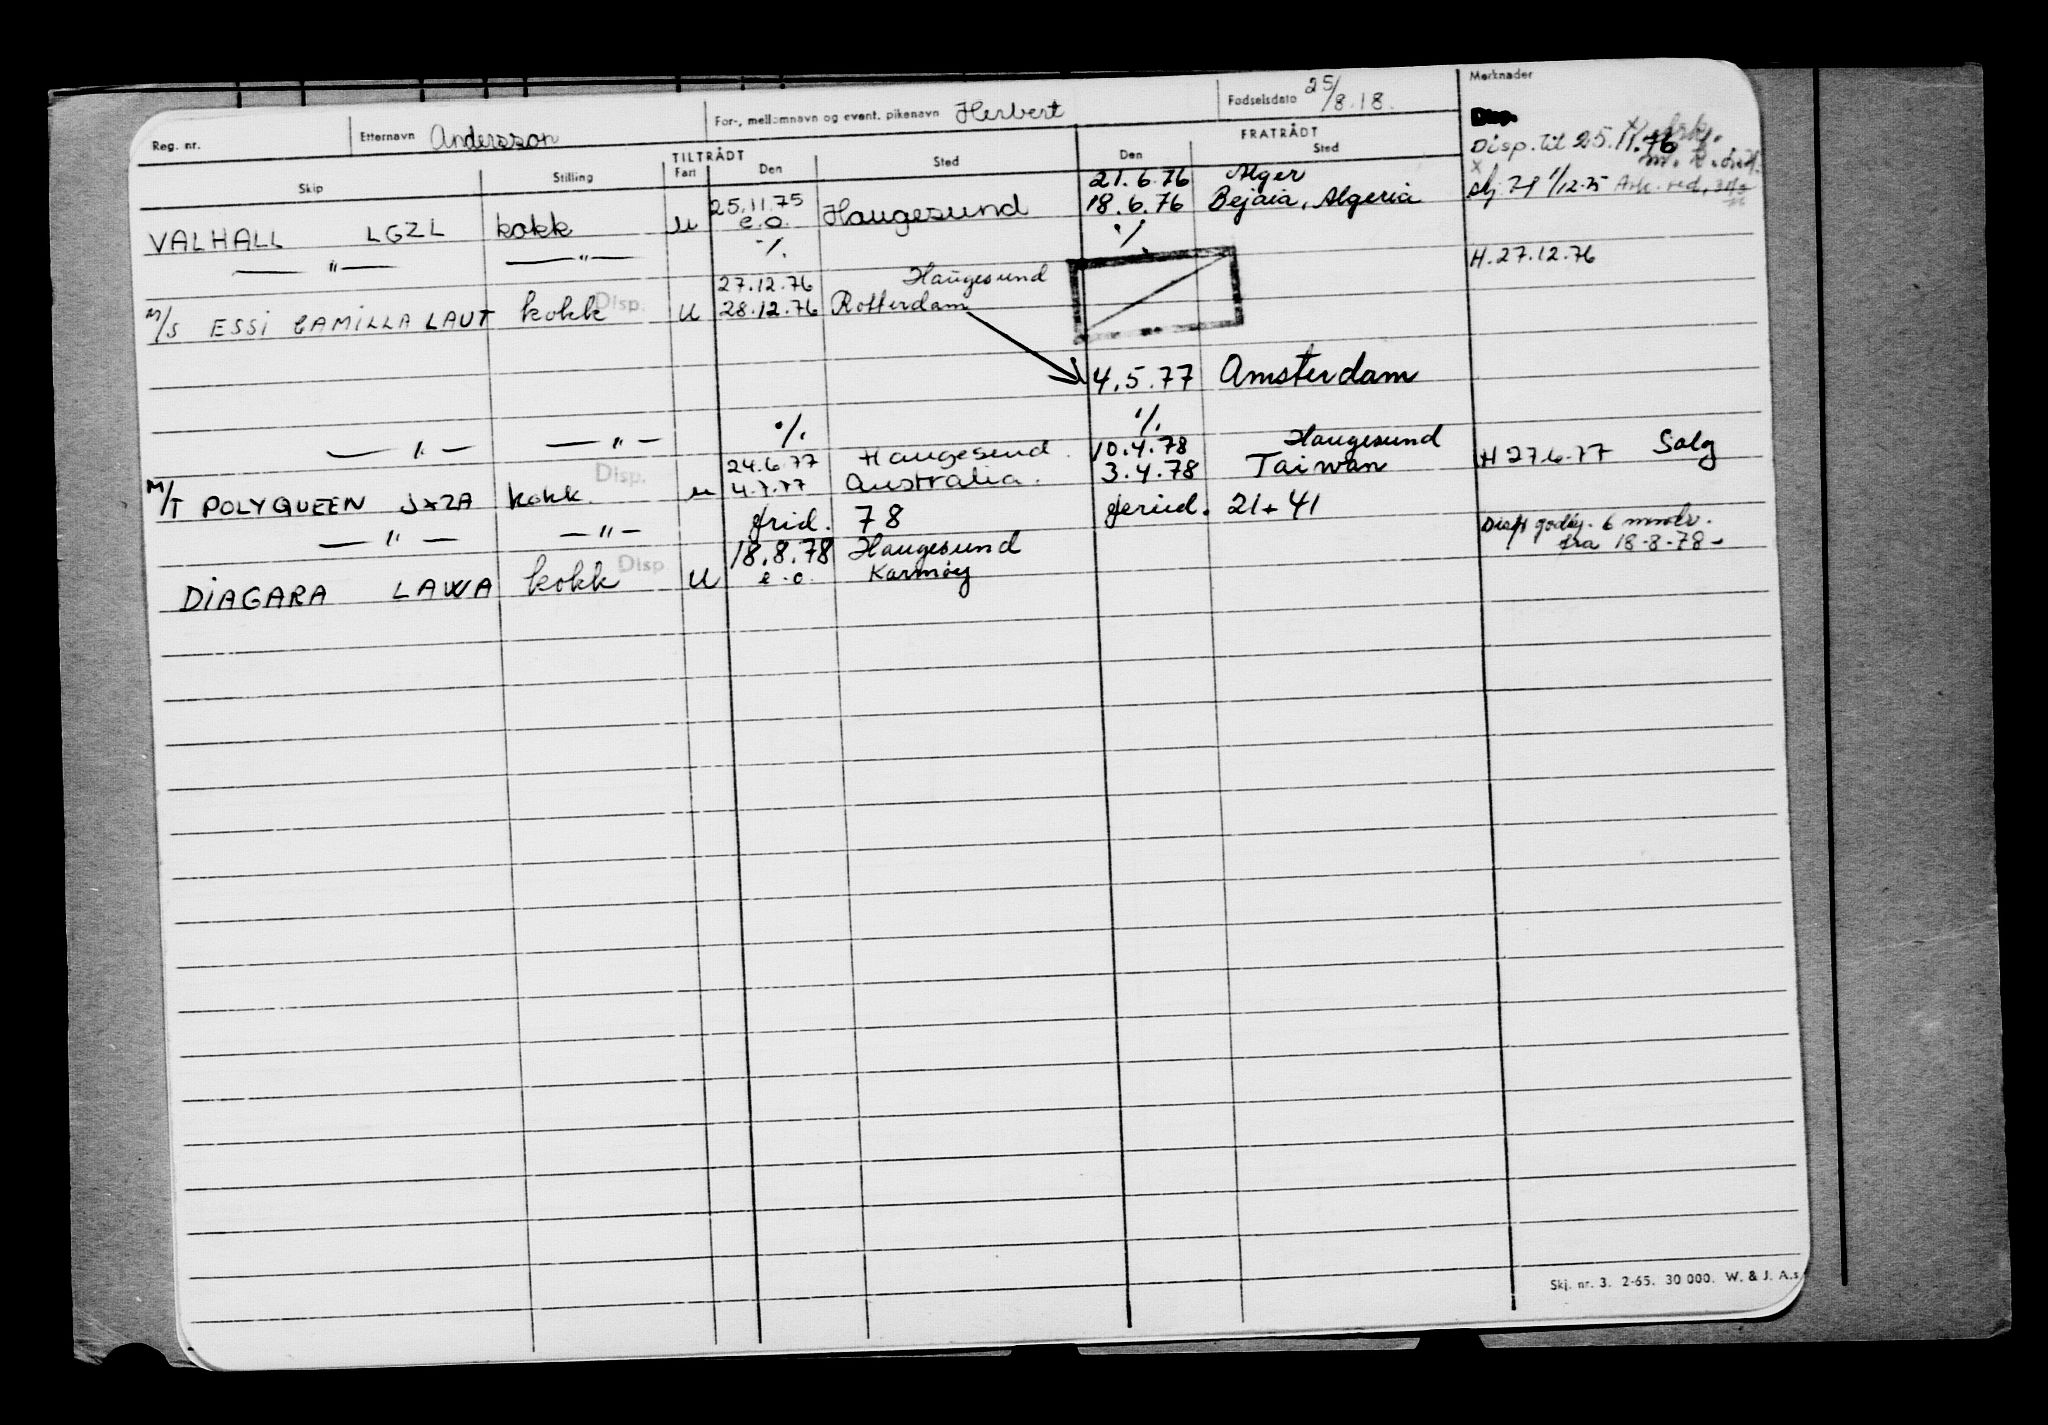 Reg. nr. Etternavn Andersson For-, mellomnavn og event. pikenavn Herbert Fødselsdato 25/8.18. Merknader
TILTRÅDT FRATRÅDT
Skip Stilling Fart Den Sted Den Sted
Disp. til 25.11.76
25.11.75 21.6.76 Alger
VALHALL LGZL kokk u e.o. Haugesund 18.6.76 Bejaia, Algeria 1/12-75
— " — — " — ./. ./.
27.12.76 Haugesund H. 27.12.76
M/S ESSI CAMILLA LAUT kokk Disp. u 28.12.76 Rotterdam
4.5.77 Amsterdam
— " — — " — ./. ./.
24.6.77 Haugesund. 10.4.78 Haugesund H 27.6.77 Salg
M/T POLYQUEEN JXZA kokk. Disp. u 4.7.77 Australia. 3.4.78 Taiwan
— " — — " — frid. 78 feried. 21+41
18.8.78 Haugesund Disp godkj. 6 mndr.
fra 18-8-78-
DIAGARA LAWA kokk Disp u e.o. Karmøy
Skj. nr. 3. 2-65. 30 000. W. & J. A.s